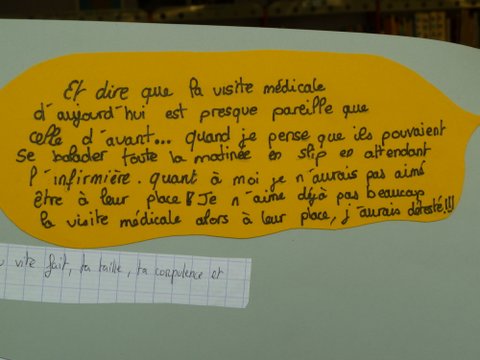 Et dire que la visite médicale
d'aujourd'hui est presque pareille que
celle d'avant... quand je pense que ils pouvaient
se balader toute la matinée en slip en attendant
l'infirmière. quant à moi je n'aurais pas aimé
être à leur place ! Je n'aime déjà pas beaucoup
la visite médicale alors à leur place, j'aurais détesté !!!
vite fait, ta taille, ta corpulence et